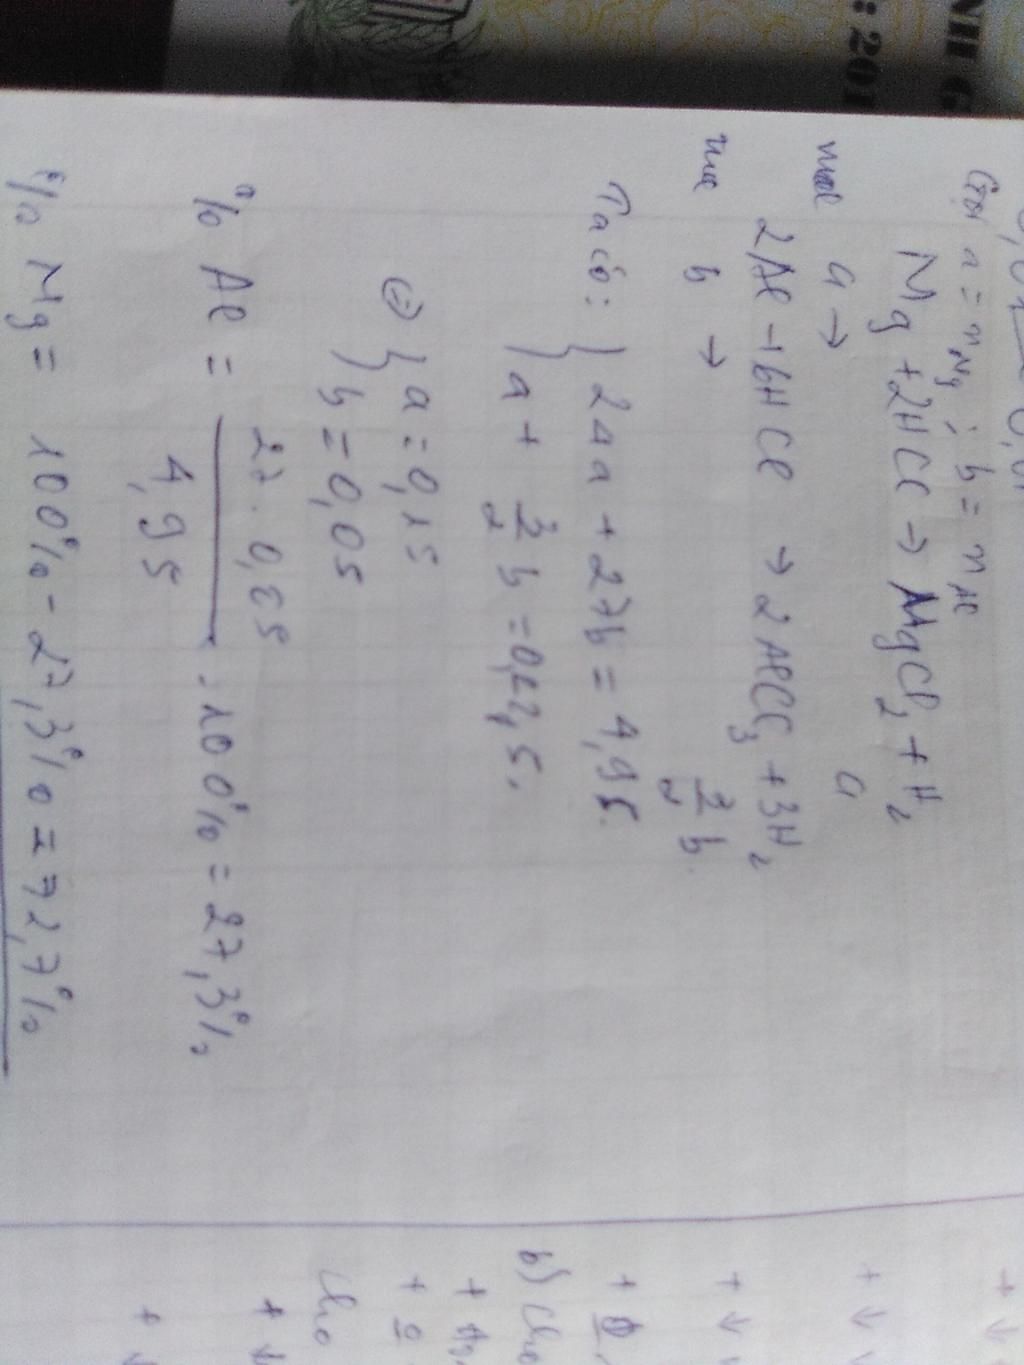 NH 6
: 201
Gọi a = nMg ; b = nAl
Mg + 2HCl → MgCl2 + H2
mol a → a
2Al + 6HCl → 2AlCl3 + 3H2
mol b → 3/2 b
Ta có: { 24a + 27b = 4,95
{ a + 3/2 b = 0,225.
{ a = 0,15
{ b = 0,05
% Al = 27 . 0,05 / 4,95 . 100% = 27,3%
% Mg = 100% - 27,3% = 72,7%
+ ↓
+ ↓
+ ↓
+
b) Cho
+
+
Cho
+ ↓
+ ↓